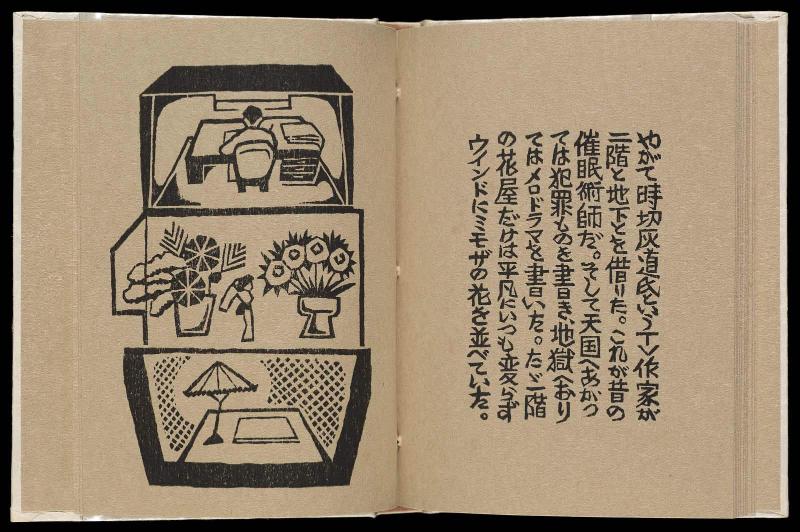 やがて時切灰道氏というTV作家が
二階と地下とを借りた。これが昔の
催眠術師だ。そして天国へあがっ
ては犯罪ものを書き、地獄へおり
てはメロドラマを書いた。たゞ一階
の花屋だけは平凡にいつも変らず
ウインドにミモザの花を並べていた。